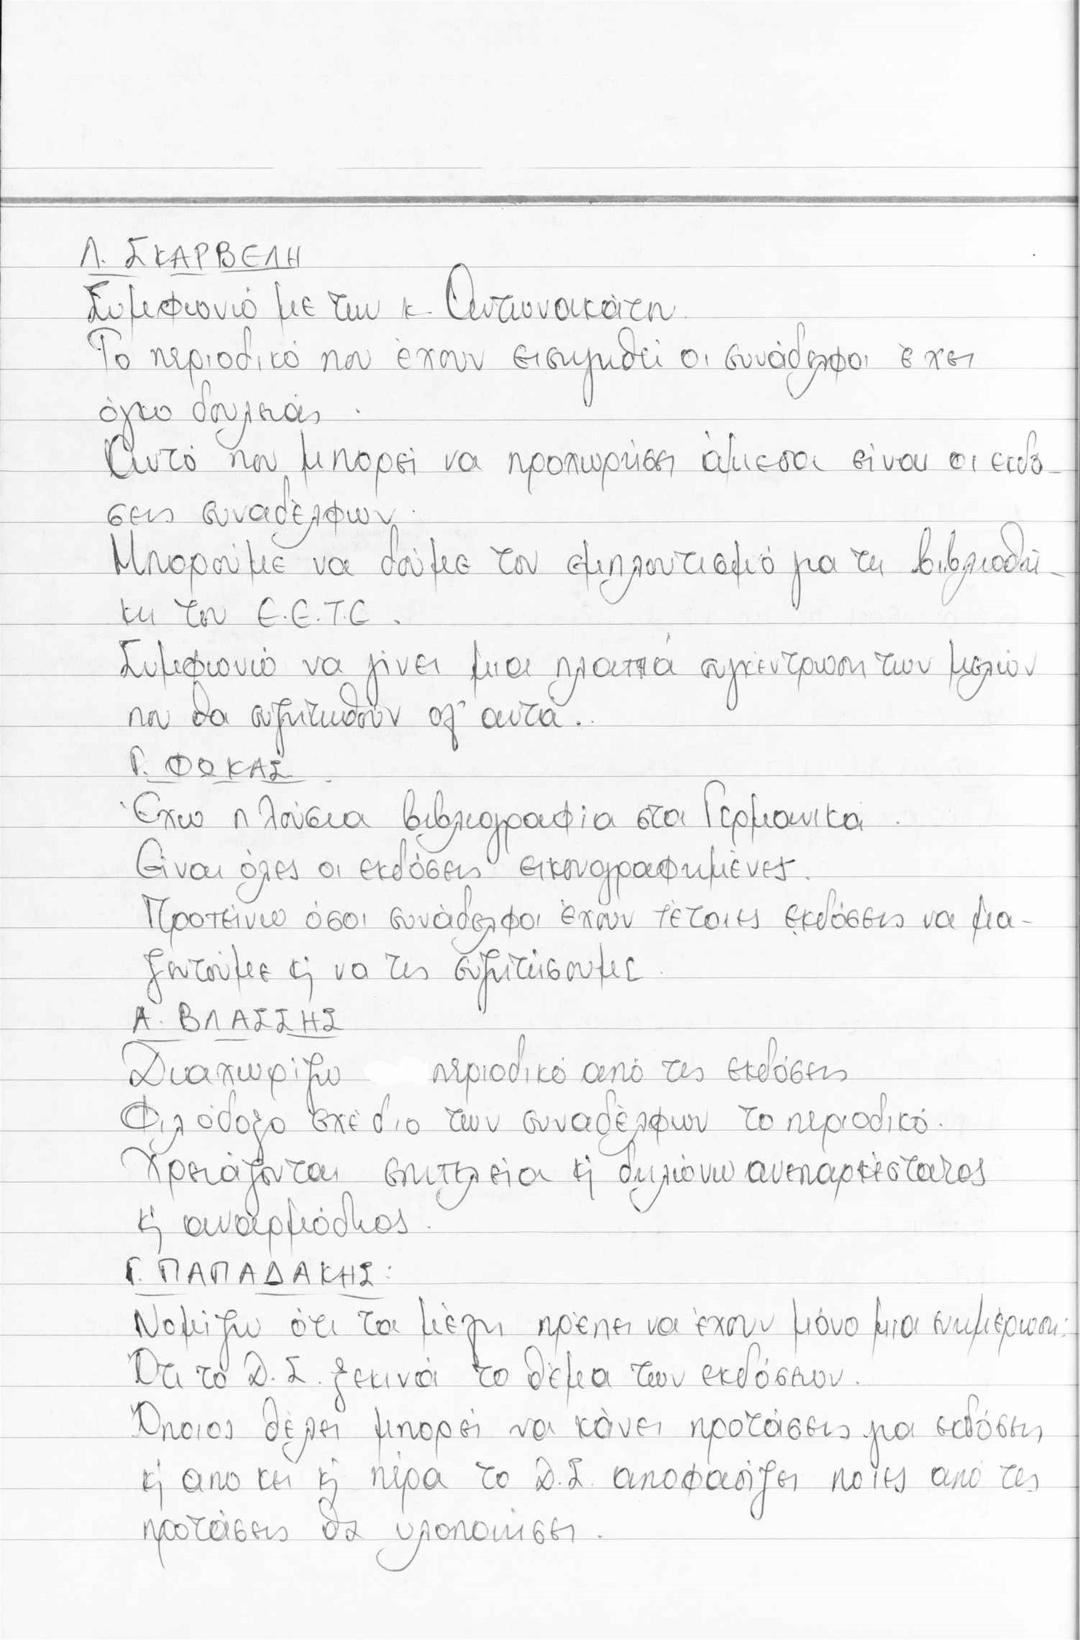 Λ. ΣΚΑΡΒΕΛΗ
Συμφωνώ με την κ. Αντωνακάτη.
Το περιοδικό που έχουν εισηγηθεί οι συνάδελφοι έχει
όγκο δουλειάς.
Αυτό που μπορεί να προχωρήσει άμεσα είναι οι εκδό-
σεις συναδέλφων.
Μπορούμε να δούμε τον εμπλουτισμό για τη βιβλιοθή-
κη του Ε.Ε.Τ.Ε.
Συμφωνώ να γίνει μια πλατιά συγκέντρωση των μελών
που θα συζητηθούν ολ' αυτά..
Γ. ΦΩΚΑΣ
Έχω πλούσια βιβλιογραφία στα Γερμανικά.
Είναι όλες οι εκδόσεις εικονογραφημένες.
Προτείνω όσοι συνάδελφοι έχουν τέτοιες εκδόσεις να μα-
ζευτούμε κ' να τις συζητήσουμε.
Α. ΒΛΑΣΣΗΣ
Διαχωρίζω περιοδικό από τις εκδόσεις
Φιλόδοξο σχέδιο των συναδέλφων το περιοδικό.
Χρειάζονται επιτελεία κ' δηλώνω ανεπαρκέστατος
κ' αναρμόδιος.
Γ. ΠΑΠΑΔΑΚΗΣ:
Νομίζω ότι τα μέλη πρέπει να έχουν μόνο μια ενημέρωση:
Ότι το Δ.Σ. ξεκινά το θέμα των εκδόσεων.
Όποιος θέλει μπορεί να κάνει προτάσεις για εκδόσεις
κ' απο κει κ' πέρα το Δ.Σ. αποφασίζει ποιες από τις
προτάσεις θα υλοποιήσει.